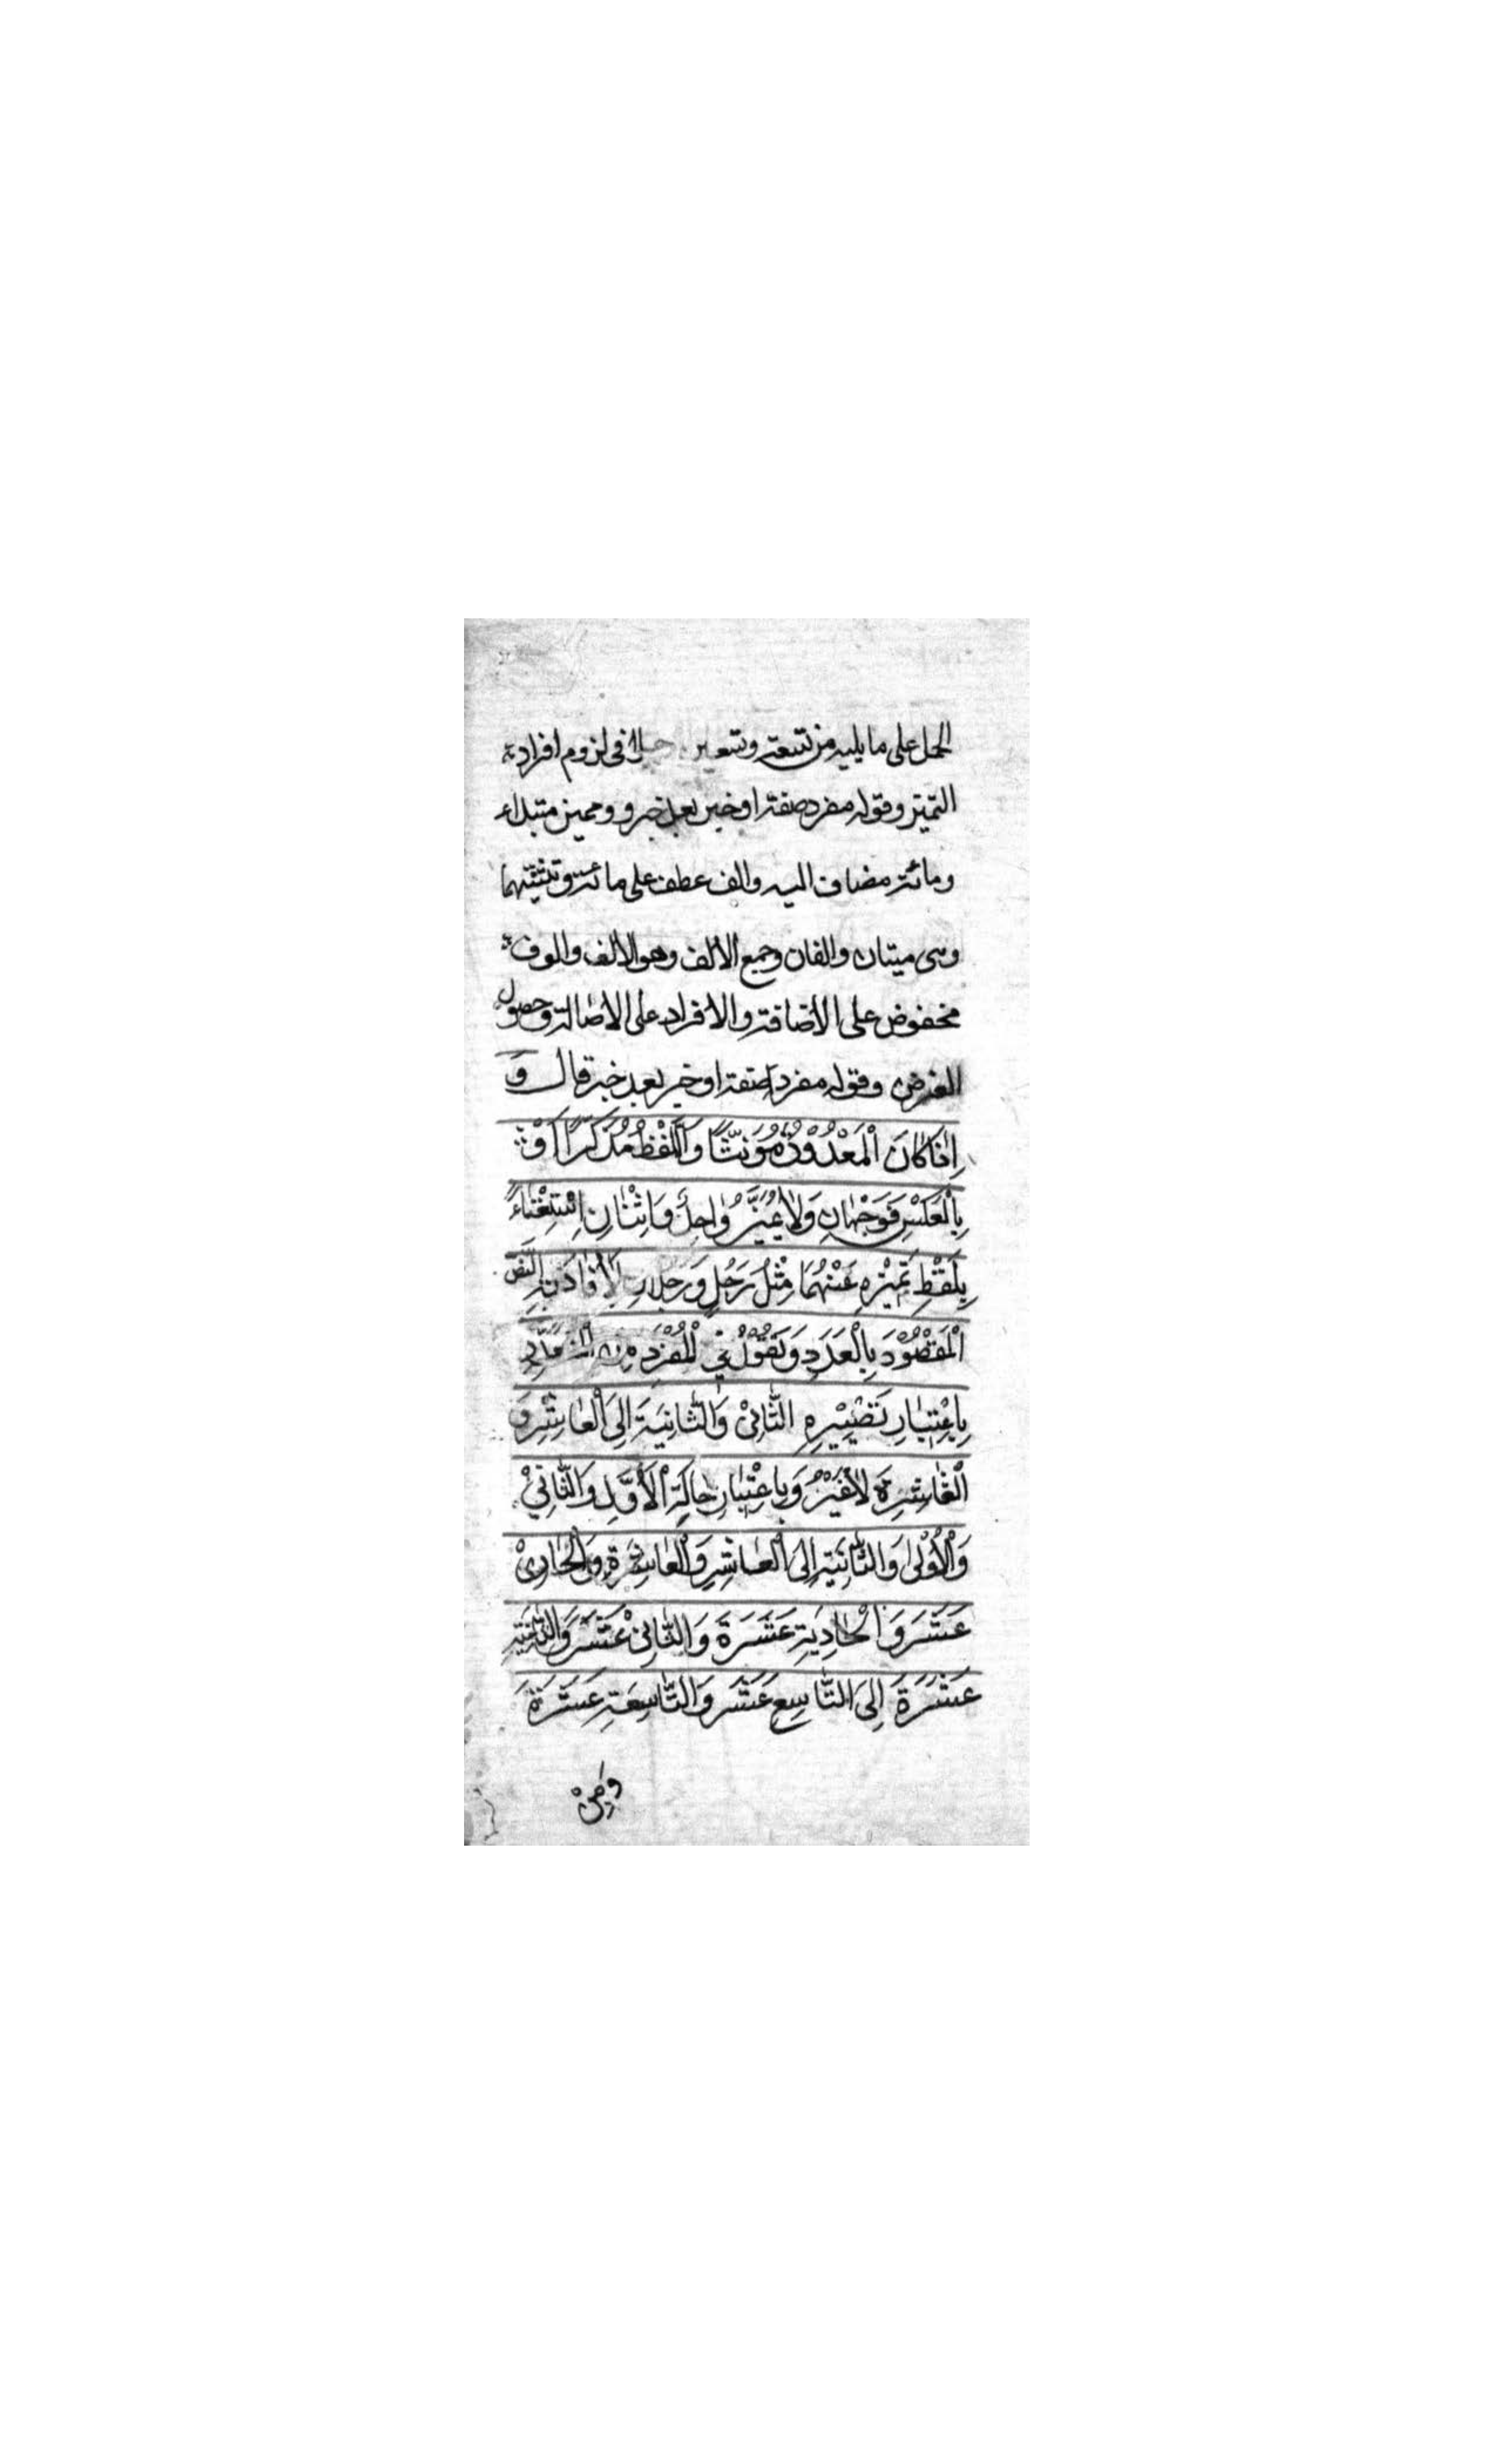 الحمل على ما يليه من تسعة وتسعين في لزوم افراد
التميز وقوله مفرد صفة او خبر بعد خبر ومميز مبتداء
ومائة مضاف اليه والف عطف على مائة وتثنيتهما
وهي ميتان والفان وجمع الالف وهو الالف والوف
مخفوض على الاضافة والافراد على الاصالة وحصول
الغرض وقوله مفرد صفة او خبر بعد خبر قال وَ
اِذَا كَانَ الْمَعْدُوْدُ مُوَنَّثًا وَاللَّفْظُ مُذَكَّرًا اَوْ
بِالْعَكْسِ فَوَجْهَانِ وَلَا يُمَيَّزُ وَاحِدٌ وَاثْنَانِ اِسْتِغْنَاءً
بِلَفْظِ تَمِيْزِهِ عَنْهُمَا مِثْلُ رَجُلٍ وَرَجُلَانِ لِاِفَادَتِهِ النَّصَّ
الْمَقْصُوْدَ بِالْعَدَدِ وَتَقُوْلُ فِي الْمُفْرَدِ مِنَ الْمُتَعَدِّدِ
بِاِعْتِبَارِ تَصْيِيْرِهِ الثَّانِيْ وَالثَّانِيَةَ اِلَى الْعَاشِرِ وَ
الْعَاشِرَةِ لَا غَيْرُ وَبِاعْتِبَارِ حَالِهِ الْاَوَّلِ وَالثَّانِيْ
وَالْاُوْلٰى وَالثَّانِيَةِ اِلَى الْعَاشِرِ وَالْعَاشِرَةِ وَالْحَادِيْ
عَشَرَ وَالْحَادِيَةِ عَشَرَةَ وَالثَّانِيْ عَشَرَ وَالثَّانِيَةِ
عَشَرَةَ اِلَى التَّاسِعِ عَشَرَ وَالتَّاسِعَةِ عَشَرَةَ
وَمِنْ